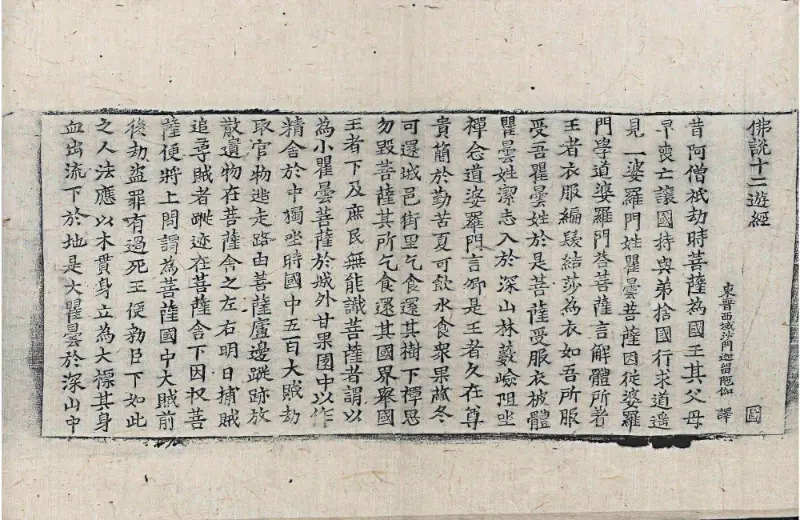 佛說十二遊經
東晉西域沙門迦留陀伽 譯
昔阿僧祇劫時菩薩為國王其父母
早喪亡讓國持與弟捨國行求道遥
見一婆羅門姓瞿曇菩薩因從婆羅
門學道婆羅門荅菩薩言解體所著
王者衣服編髮結莎為衣如吾所服
受吾瞿曇姓於是菩薩受服衣被體
瞿曇姓潔志入於深山林藪嶮阻坐
禪念道婆羅門言卿是王者久在尊
貴簡於勤苦夏可飲水食衆果蓏冬
可還城邑街里乞食還其樹下禪思
勿毀菩薩其所乞食還其國界舉國
王者下及庶民無能識菩薩者謂以
為小瞿曇菩薩於城外甘果園中以作
精舍於中獨坐時國中五百大賊劫
取官物逃走路由菩薩廬邊蹤跡放
散遺物在菩薩舍之左右明日捕賊
追尋賊者蹤迹在菩薩舍下因收菩
薩便將上問謂為菩薩國中大賊前
後劫盜罪有過死王便勑臣下如此
之人法應以木貫身立為大標其身
血出流下於地是大瞿曇於深山中